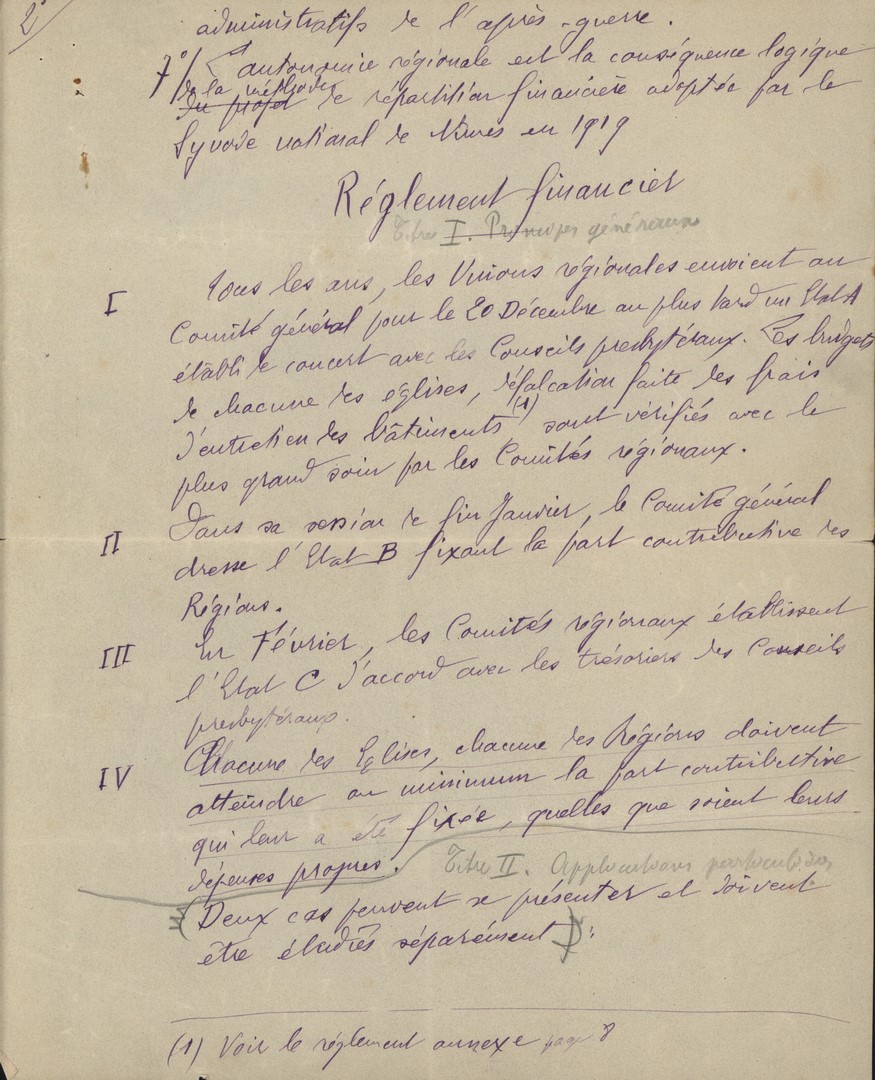 2°
administratifs de l'après-guerre.
7°/ L'autonomie régionale est la conséquence logique
de la méthode
du projet de répartition financière adoptée par le
Synode national de Nimes en 1919
Réglement financier
Titre I. Principes généraux
I Tous les ans, les Unions régionales envoient au
Comité général pour le 20 Décembre au plus tard un Etat A
établi de concert avec les Conseils presbytéraux. Les budgets
de chacune des églises, défalcation faite des frais
d'entretien des bâtiments (1) sont vérifiés avec le
plus grand soin par les Comités régionaux.
II Dans sa session de fin Janvier, le Comité général
dresse l'Etat B fixant la part contributive des
Régions.
III En Février, les Comités régionaux établissent
l'Etat C d'accord avec les trésoriers des Conseils
presbytéraux.
IV Chacune des Eglises, chacune des Régions doivent
atteindre au minimum la part contributive
qui leur a été fixée, quelles que soient leurs
dépenses propres.
Titre II. Applications particulières
(Deux cas peuvent se présenter et doivent
être étudiés séparément):
(1) Voir le réglement annexe page 8